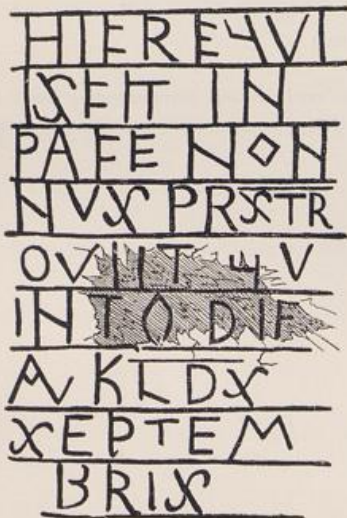 HIC REQVI
ISCIT IN
PACE NON
NVS PRSTR
OVIIT QV
INTO DIE
A KLDS
SEPTEM
BRIS